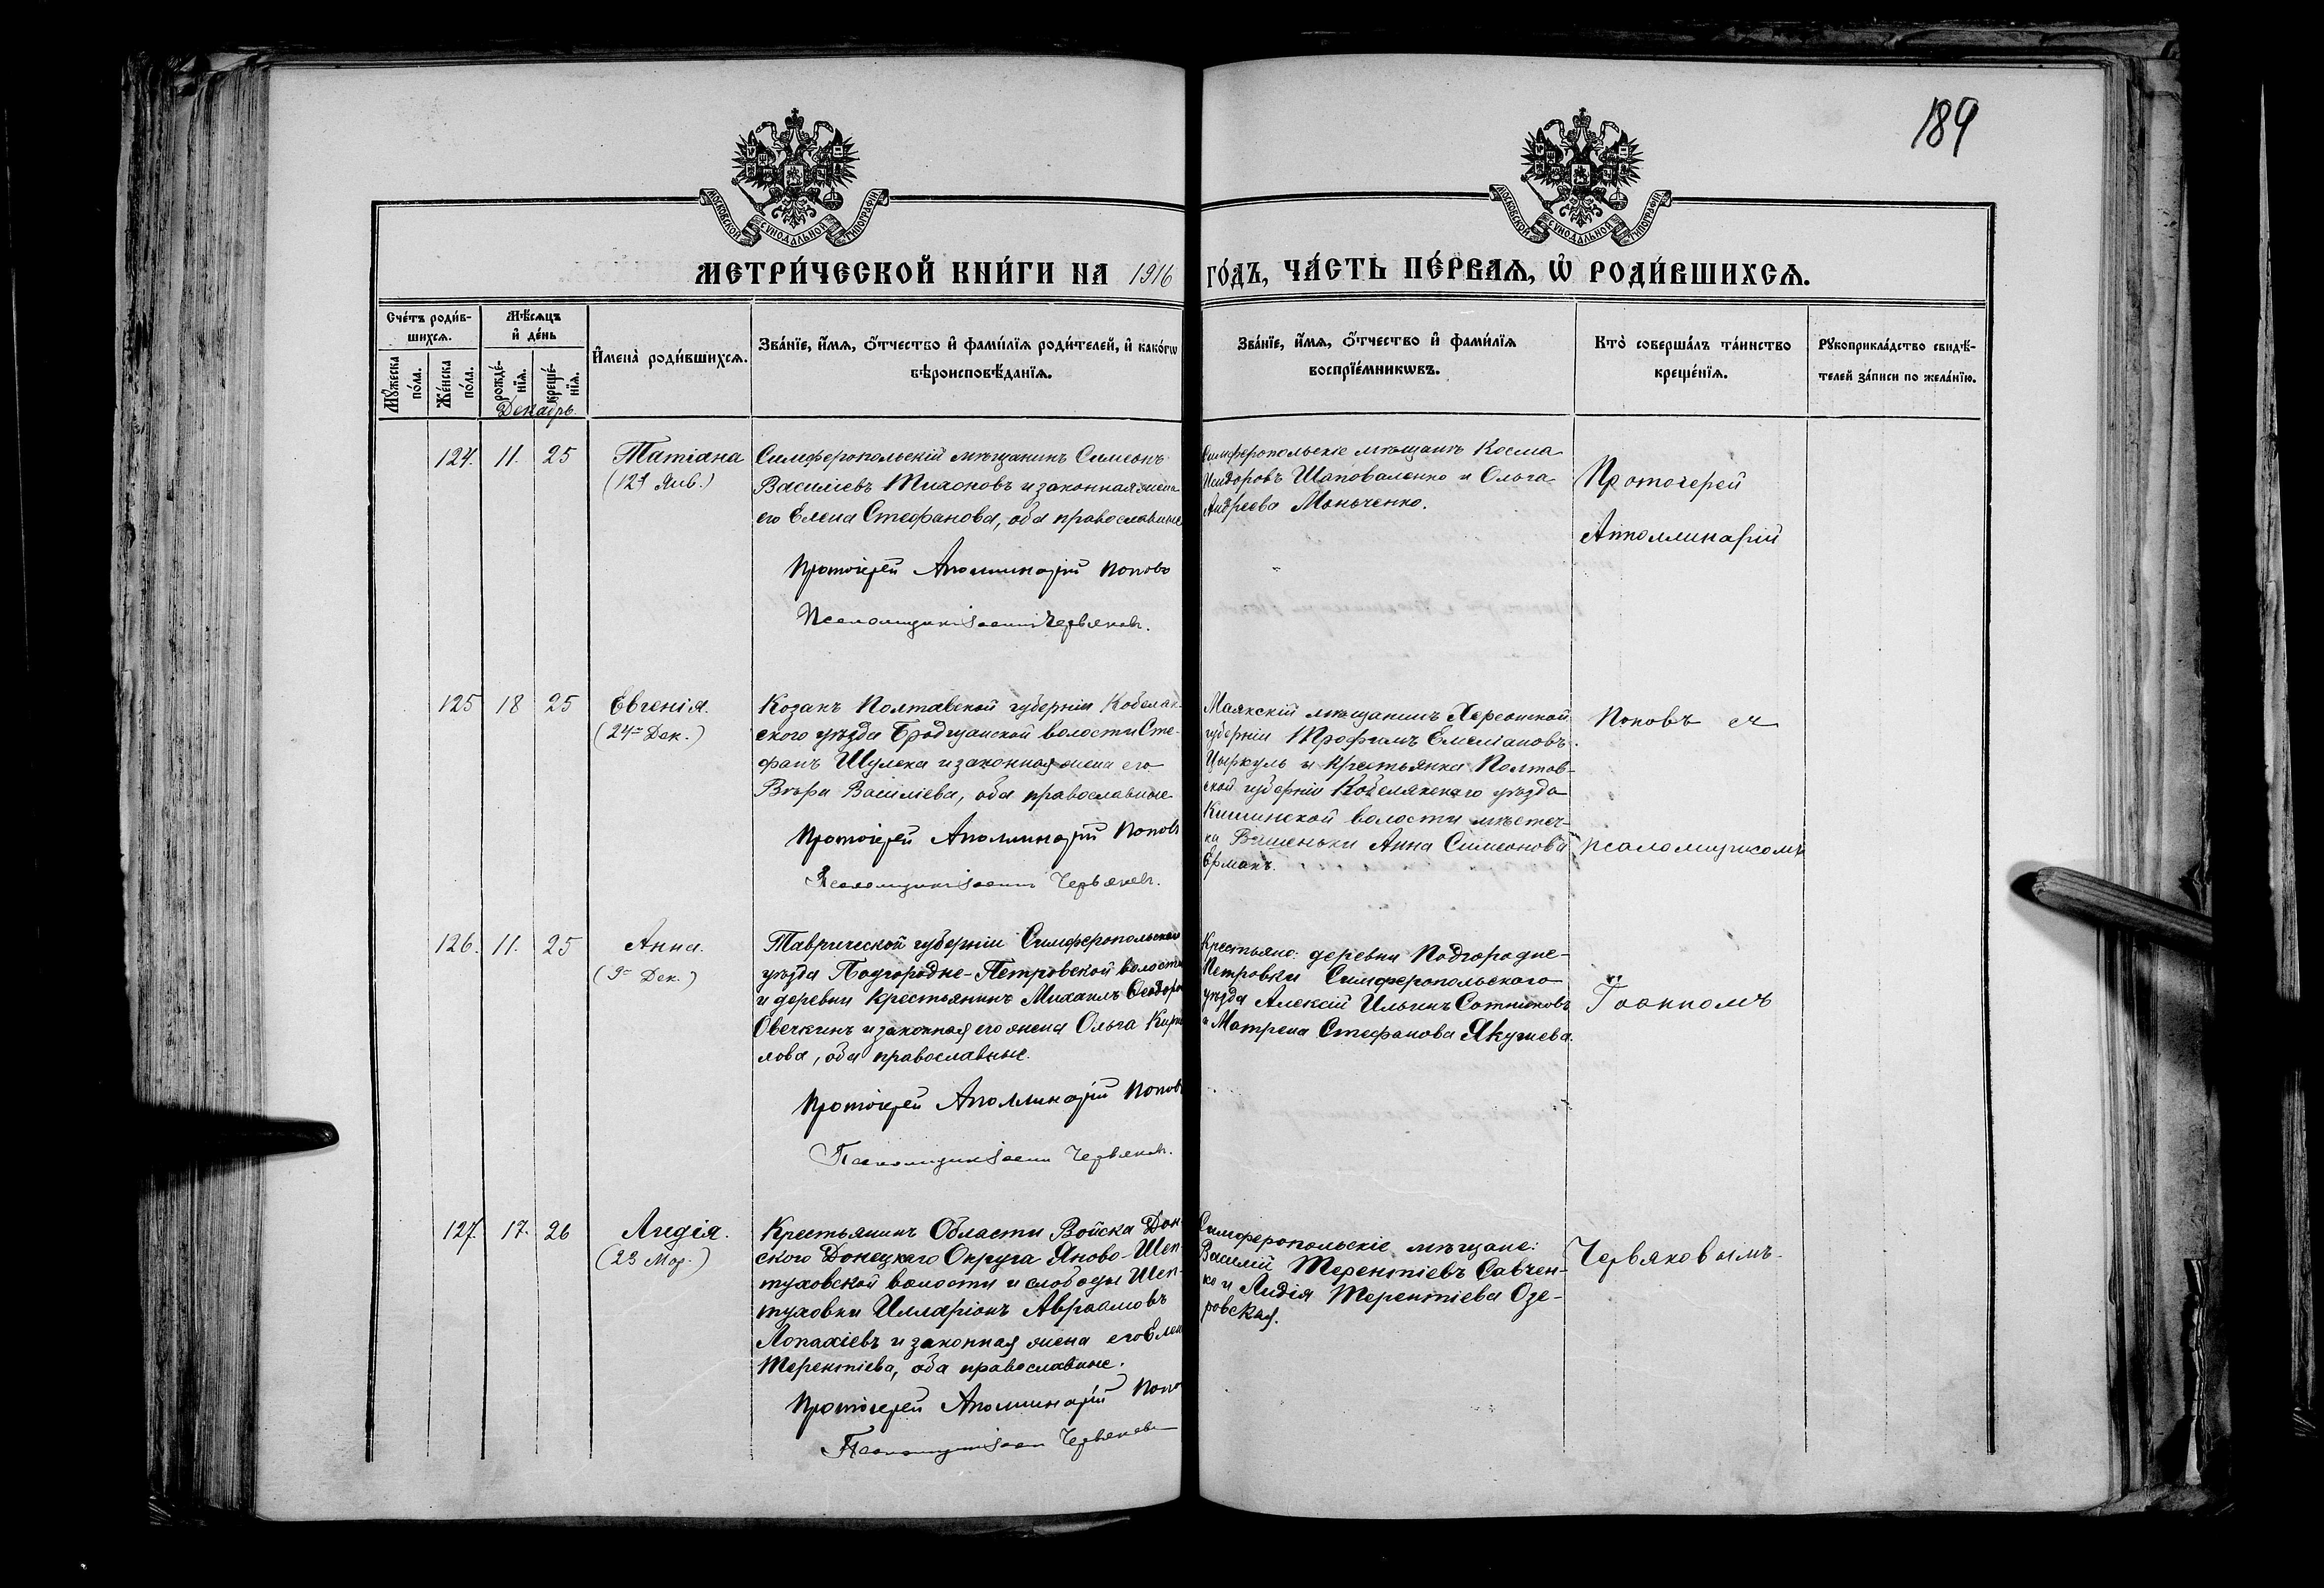 189
МЕТРИ́ЧЕСКОЙ КНИ́ГИ НА 1916 ГО́ДЪ, ЧА́СТЬ ПЕ́РВАѦ, Ѡ҆ РОДИ́ВШИХСѦ.
Сче́тъ роди́в-
шихсѧ.
Мꙋ́жеска по́ла.
Же́нска по́ла.
Мѣ́сѧцъ
и҆ де́нь
рожде́-
нїѧ.
креще́-
нїѧ.
Декабрь.
И҆мена̀ роди́вшихсѧ.
Зва́нїе, и҆́мѧ, ѻ҆́тчество и҆ фами́лїѧ роди́телей, и҆ како́гѡ
вѣроисповѣ́данїѧ.
Зва́нїе, и҆́мѧ, ѻ҆́тчество и҆ фами́лїѧ
воспрїе́мникѡвъ.
Кто̀ соверша́лъ та́инство
креще́нїѧ.
Рꙋкоприкла́дство свидѣ́-
телей за́писи по жела́нїю.
124. 11. 25 Татіана
(12го Янв.)
Симферопольскій мѣщанинъ Симеонъ
Василіевъ Тихоновъ и законная жена
его Елена Стефанова, оба православные
Протоіерей Аполлинарій Поповъ
Псаломщикъ Іоаннъ Червяковъ.
Симферопольскіе мѣщане Косма
Исидоровъ Шаповаленко и Ольга
Андреева Моньченко.
Протоіерей
Апполлинарій
125 18 25 Евгенія.
(24го Дек.)
Козакъ Полтавской губерніи Кобеляк-
скаго уѣзда Бродщанской волости Сте-
фанъ Шулека и законная жена его
Вѣра Василіева, оба православные
Протоіерей Аполлинарій Поповъ
Псаломщикъ Іоаннъ Червяковъ.
Маякскій мѣщанинъ Херсонской
губерніи Трофимъ Емеліановъ
Цыркуль и крестьянка Полтав-
ской губерніи Кобелякскаго уѣзда
Кишинской волости мѣстеч-
ка Вишеньки Анна Симеонова
Ермакъ.
Поповъ съ
псаломщикомъ
126. 11. 25 Анна.
(9го Дек.)
Таврической губерніи Симферопольскаго
уѣзда Подгородне-Петровской волости
и деревни крестьянинъ Михаилъ Ѳеодоро
Овечкинъ и законная его жена Ольга Кири
лова, оба православные.
Протоіерей Аполлинарій Поповъ
Псаломщикъ Іоаннъ Червяковъ.
Крестьяне: деревни Подгородне-
Петровки Симферопольскаго
уѣзда Алексій Ильинъ Сотниковъ
и Матрена Стефанова Якушева.
Іоанномъ
127. 17. 26 Лидія.
(23 Мар.)
Крестьянинъ Области Войска Дон-
ского Донецкаго Округа Яново-Шеп-
туховской волости и слободы Шеп-
туховки Илларіонъ Авраамовъ
Лопахіевъ и законная жена его Елен
Терентіева, оба православные.
Протоіерей Аполлинарій Попо
Псаломщикъ Іоаннъ Червяковъ
Симферопольскіе мѣщане:
Василій Терентіевъ Савчен-
ко и Лидія Терентіева Озе-
ровская.
Червяковымъ.